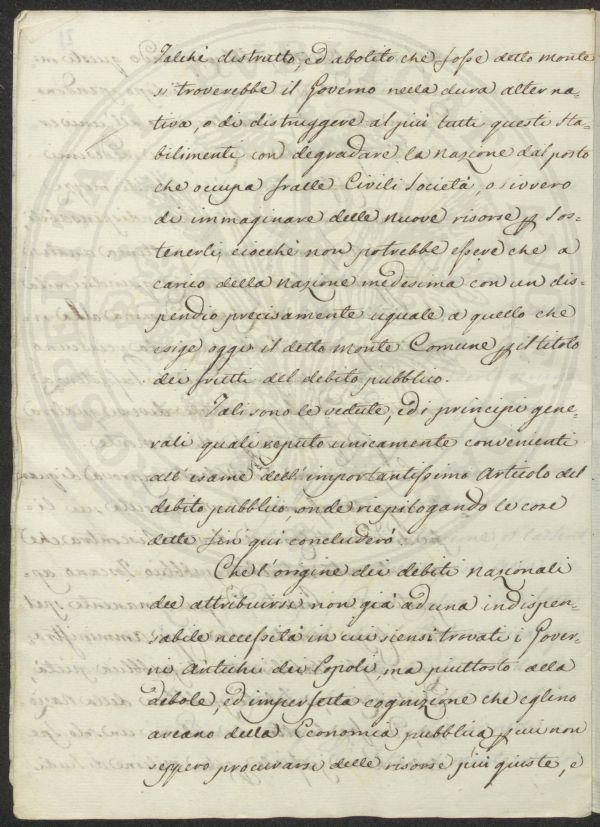 Talchè distrutto, ed abolito che fosse detto Monte
si troverebbe il Governo nella dura alterna=
tiva, o di distruggere al più tutti questi Sta=
bilimenti con degradare la Nazione dal posto
che occupa fralle Civili Società, o sivvero
di immaginare delle nuove risorse p. Sos=
tenerli, ciocchè non potrebbe essere che a
carico della Nazione medesima con un dis=
pendio precisamente uguale a quello che
esige oggi il detto Monte Comune p. il titolo
dei frutti del debito pubblico.
Tali sono le vedute, ed i principj gene=
rali quali reputo unicamente convenienti
all'esame dell'importantissimo Articolo del
debito pubblico, onde riepilogando le cose
dette fin qui concluderò.
Che l'origine dei debiti Nazionali
dee attribuirsi non già ad una indispen=
sabile necessità in cui siensi trovati i Gover=
ni Antichi dei Popoli, ma piuttosto alla
debole, ed imperfetta cognizione che eglino
aveano della Economia pubblica p. cui non
seppero procurarsi delle risorse più giuste, e